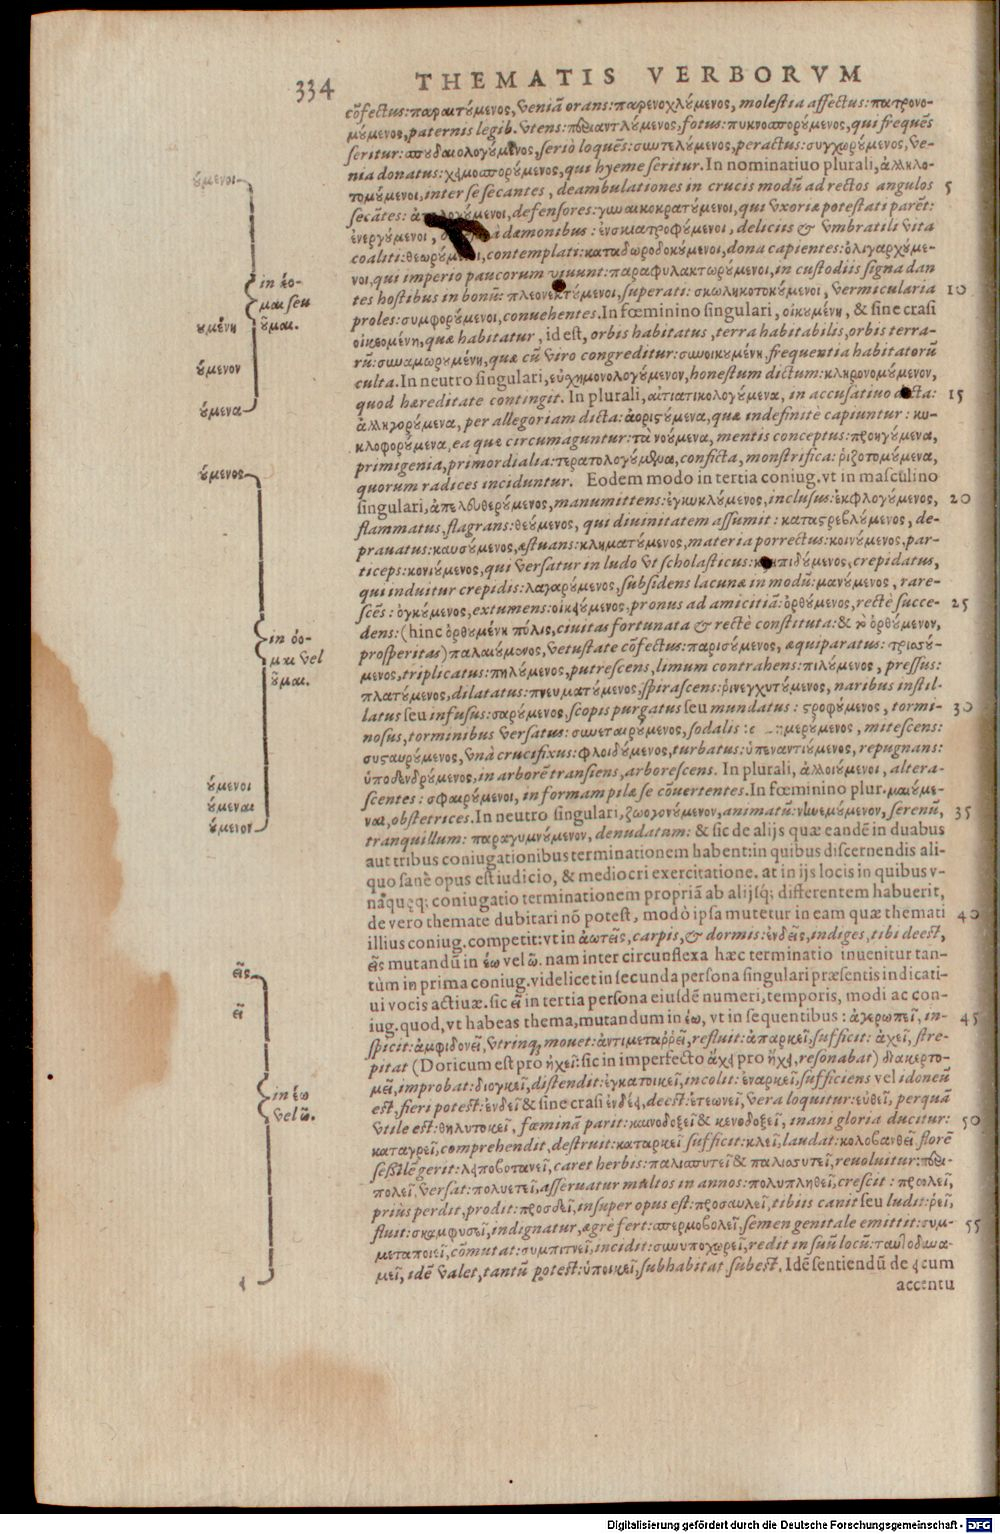 334 THEMATIS VERBORVM
cõfectus: παραιτούμενος, veniã orans: παρενοχλούμενος, molestia affectus: πατρονο-
μούμενος, paternis legib. vtens: περιαντλούμενος, fotus: πυκνοσπορούμενος, qui frequẽs
seritur: σπουδαιολογούμενος, seriò loquẽs: συντελούμενος, peractus: συγχωρούμενος, ve-
nia donatus: χειμοσπορούμενος, qui hyeme seritur. In nominatiuo plurali, ἀλληλο-
τομούμενοι, inter se secantes, deambulationes in crucis modũ ad rectos angulos 5
secãtes: γυναικοκρατούμενοι, qui vxoriæ potestati parẽt:
ἐνεργούμενοι, à dæmonibus: ἐνσκιατροφούμενοι, deliciis & vmbratili vita
coaliti: θεωρούμενοι, contemplati: καταδωροδοκούμενοι, dona capientes: ὀλιγαρχούμε-
νοι, qui imperio paucorum viuunt: παραφυλακτωρούμενοι, in custodiis signa dan
tes hostibus in bonũ: πλεονεκτούμενοι, superati: σκωληκοτοκούμενοι, vermicularia 10
proles: συμφορούμενοι, conuehentes. In fœminino singulari, οἰκουμένη, & sine crasi
οἰκεομένη, quæ habitatur, id est, orbis habitatus, terra habitabilis, orbis terra-
rũ: συναμωρουμένη, quæ cũ viro congreditur: συνοικουμένη, frequentia habitatorũ
culta. In neutro singulari, εὐχημονολογούμενον, honestum dictum: κληρονομούμενον,
quod hæreditate contingit. In plurali, αἰτιατικολογούμενα, in accusatiuo dicta: 15
ἀλληγορούμενα, per allegoriam dicta: ἀοριστούμενα, quæ indefinitè capiuntur: κυ-
κλοφορούμενα, ea quæ circumaguntur: τὰ νοούμενα, mentis conceptus: προηγούμενα,
primigenia, primordialia: τερατολογούμενα, conficta, monstrifica: ῥιζοτομούμενα,
quorum radices inciduntur. Eodem modo in tertia coniug. vt in masculino
singulari, ἀπελευθερούμενος, manumittens: ἐγκυκλούμενος, inclusus: ἐκφλογούμενος, 20
flammatus, flagrans: θεούμενος, qui diuinitatem assumit: καταστρεβλούμενος, de-
prauatus: καυσούμενος, æstuans: κληματούμενος, materia porrectus: κοινούμενος, par-
ticeps: κονιούμενος, qui versatur in ludo vt scholasticus: κρηπιδούμενος, crepidatus,
qui induitur crepidis: λαγαρούμενος, subsidens lacunæ in modũ: μανούμενος, rare-
scẽs: ὀγκούμενος, extumens: οἰκειούμενος, pronus ad amicitiã: ὀρθούμενος, rectè succe- 25
dens: (hinc ὀρθουμένη πόλις, ciuitas fortunata & rectè constituta: & τὸ ὀρθούμενον,
prosperitas) παλαιούμενος, vetustate cõfectus: παρισούμενος, æquiparatus: τρισσού-
μενος, triplicatus: πηλούμενος, putrescens, limum contrahens: πιλούμενος, pressus:
πλατούμενος, dilatatus: πνευματούμενος, spirascens: ῥινεγχυτούμενος, naribus instil-
latus seu infusus: σαρούμενος, scopis purgatus seu mundatus: στροφούμενος, tormi- 30
nosus, torminibus versatus: συνεταιρούμενος, sodalis: mitescens:
συσταυρούμενος, vnà crucifixus: φλοιδούμενος, turbatus: ὑπεναντιούμενος, repugnans:
ὑποδενδρούμενος, in arborẽ transiens, arborescens. In plurali, ἀλλοιούμενοι, altera-
scentes: σφαιρούμενοι, in formam pilæ se cõuertentes. In fœminino plur. μαιούμε-
ναι, obstetrices. In neutro singulari, ζωογονούμενον, animatũ: νηνεμούμενον, serenũ, 35
tranquillum: παραγυμνούμενον, denudatum: & sic de alijs quæ eandẽ in duabus
aut tribus coniugationibus terminationem habent: in quibus discernendis ali-
quo sanè opus est iudicio, & mediocri exercitatione. at in ijs locis in quibus v-
naquęq; coniugatio terminationem propriã ab alijsq́; differentem habuerit,
de vero themate dubitari nõ potest, modò ipsa mutetur in eam quæ themati 40
illius coniug. competit: vt in ἀωτεῖς, carpis, & dormis: ἐνδεῖς, indiges, tibi deest,
εῖς mutandũ in έω vel ῶ. nam inter circunflexa hæc terminatio inuenitur tan-
tùm in prima coniug. videlicet in secunda persona singulari præsentis indicati-
ui vocis actiuæ. sic εῖ in tertia persona eiusdẽ numeri, temporis, modi ac con-
iug. quod, vt habeas thema, mutandum in έω, vt in sequentibus: ἀγερωπεῖ, in- 45
spicit: ἀμφιδονεῖ, vtrinq; mouet: ἀντιμεταῤῥεῖ, refluit: ἀπαρκεῖ, sufficit: ἀχεῖ, stre-
pitat (Doricum est pro ἠχεῖ: sic in imperfecto ἄχει pro ἤχει, resonabat) διακερτο-
μεῖ, improbat: διογκεῖ, distendit: ἐγκατοικεῖ, incolit: ἐναρκεῖ, sufficiens vel idoneũ
est, fieri potest: ἐνδεῖ & sine crasi ἐνδέει, deest: ἐτεωνεῖ, vera loquitur: εὐθεῖ, perquã
vtile est: θηλυτοκεῖ, fœminã parit: καινοδοξεῖ & κενοδοξεῖ, inani gloria ducitur: 50
καταγρεῖ, comprehendit, destruit: καταρκεῖ sufficit: κλεῖ, laudat: κολοβανθεῖ florẽ
seßilẽ gerit: λειποβοτανεῖ, caret herbis: παλιασυτεῖ & παλιοσυτεῖ, reuoluitur: περι-
πολεῖ, versat: πολυετεῖ, asseruatur multos in annos: πολυπληθεῖ, crescit: προωλεῖ,
priùs perdit, prodit: προσδεῖ, insuper opus est: προσαυλεῖ, tibiis canit seu ludit: ῥεῖ,
fluit: σκαμφυσεῖ, indignatur, ægrè fert: σπερμοβολεῖ, semen genitale emittit: συμ- 55
μεταποιεῖ, cõmutat: συμπιτνεῖ, incidit: συνυποχωρεῖ, redit in suũ locũ: ταυτοδυνα-
μεῖ, idẽ valet, tantũ potest: ὑποικεῖ, subhabitat, subest. Idẽ sentiendũ de ει cum
accentu
ούμενοι
in έο-
μαι seu
οῦμαι.
ουμένη
ούμενον
ούμενα
ούμενος
in όο-
μαι vel
οῦμαι.
ούμενοι
ούμεναι
ούμενον
εῖς
εῖ
in έω
vel ῶ.
ει
Digitalisierung gefördert durch die Deutsche Forschungsgemeinschaft - DFG